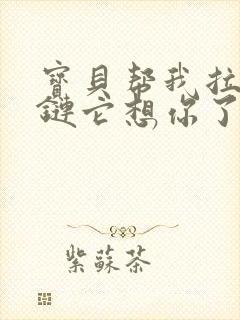 寶貝帮我拉
鏈它想你了
紫蘇茶